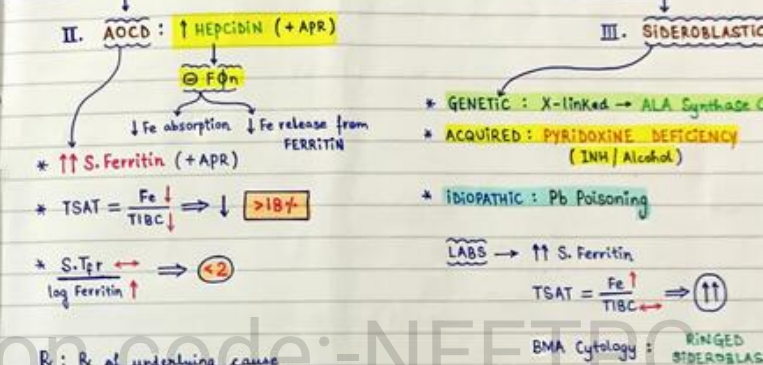 II. AOCD : ↑ HEPCIDIN (+ APR)
⊖ FΦn
↓ Fe absorption ↓ Fe release from
FERRITIN
* ↑↑ S. Ferritin (+ APR)
* TSAT = Fe ↓ / TIBC ↓ ⇒ ↓ >18%
* S.Tfr ↔ / log Ferritin ↑ ⇒ <2
Rx : Rx of underlying cause
III. SIDEROBLASTIC
* GENETIC : X-linked → ALA Synthase
* ACQUIRED : PYRIDOXINE DEFICIENCY
(INH / Alcohol)
* IDIOPATHIC : Pb Poisoning
LABS → ↑↑ S. Ferritin
TSAT = Fe ↑ / TIBC ↔ ⇒ ↑↑
BMA Cytology : RINGED
SIDEROBLAS
on code:-NEETPG